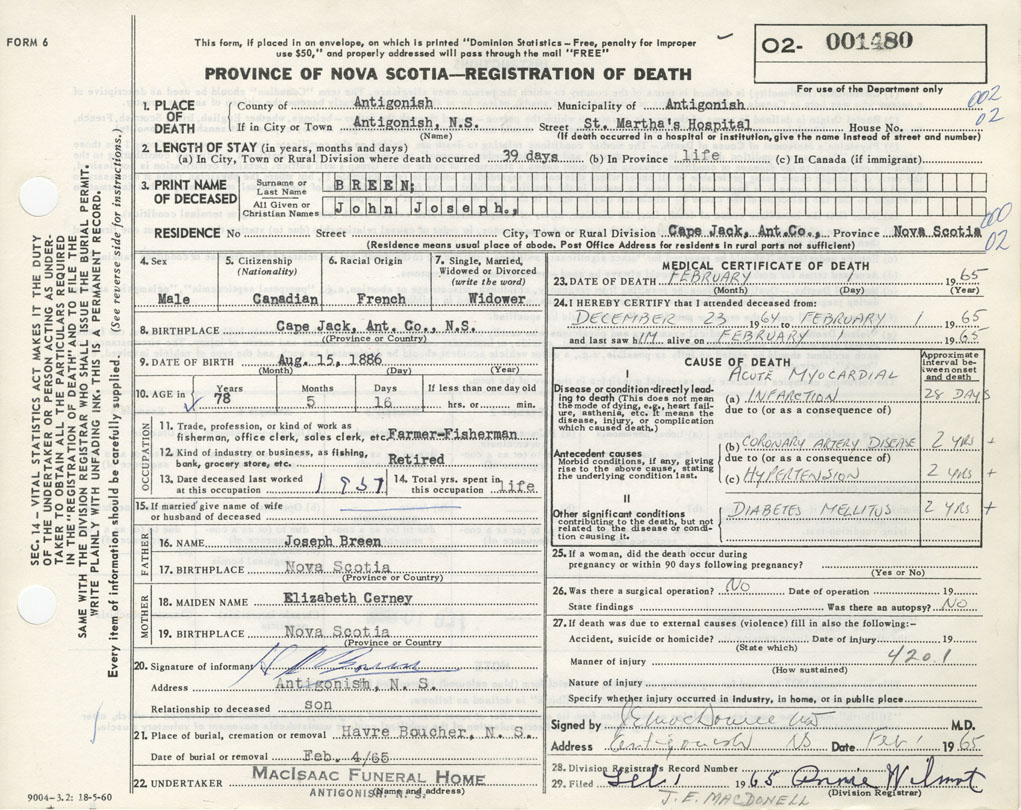 FORM 6
This form, if placed in an envelope, on which is printed "Dominion Statistics – Free, penalty for improper
use $50," and properly addressed will pass through the mail "FREE"
O2- 001480
For use of the Department only
PROVINCE OF NOVA SCOTIA—REGISTRATION OF DEATH
002
02
1. PLACE OF DEATH
County of Antigonish Municipality of Antigonish
If in City or Town Antigonish, N.S. Street St. Martha's Hospital House No.
(Name) (If death occurred in a hospital or institution, give the name instead of street and number)
2. LENGTH OF STAY (in years, months and days)
(a) In City, Town or Rural Division where death occurred 39 days (b) In Province life (c) In Canada (if immigrant)
3. PRINT NAME OF DECEASED
Surname or Last Name BREEN;
All Given or Christian Names John Joseph.,
000
02
RESIDENCE No. Street City, Town or Rural Division Cape Jack, Ant.Co., Province Nova Scotia
(Residence means usual place of abode. Post Office Address for residents in rural parts not sufficient)
4. Sex Male
5. Citizenship (Nationality) Canadian
6. Racial Origin French
7. Single, Married, Widowed or Divorced (write the word) Widower
8. BIRTHPLACE Cape Jack, Ant. Co., N.S.
(Province or Country)
9. DATE OF BIRTH Aug. 15, 1886
(Month) (Day) (Year)
10. AGE in Years 78 Months 5 Days 16 If less than one day old hrs. or min.
OCCUPATION
11. Trade, profession, or kind of work as
fisherman, office clerk, sales clerk, etc. Farmer-Fisherman
12. Kind of industry or business, as fishing,
bank, grocery store, etc. Retired
13. Date deceased last worked at this occupation 1957 14. Total yrs. spent in this occupation life
15. If married give name of wife
or husband of deceased
FATHER
16. NAME Joseph Breen
17. BIRTHPLACE Nova Scotia
(Province or Country)
MOTHER
18. MAIDEN NAME Elizabeth Cerney
19. BIRTHPLACE Nova Scotia
(Province or Country)
20. Signature of informant
Address Antigonish, N. S.
Relationship to deceased son
21. Place of burial, cremation or removal Havre Boucher, N. S.
Date of burial or removal Feb. 4/65
22. UNDERTAKER MacIsaac Funeral Home
ANTIGONISH, N. S.
(Name and address)
MEDICAL CERTIFICATE OF DEATH
23. DATE OF DEATH FEBRUARY 1 1965
(Month) (Day) (Year)
24. I HEREBY CERTIFY that I attended deceased from:
DECEMBER 23 1964 to FEBRUARY 1 1965
and last saw h IM alive on FEBRUARY 1 1965
CAUSE OF DEATH
Approximate interval between onset and death
I
Disease or condition directly leading to death (This does not mean the mode of dying, e.g., heart failure, asthenia, etc. It means the disease, injury, or complication which caused death.)
ACUTE MYOCARDIAL
(a) INFARCTION 28 DAYS
due to (or as a consequence of)
Antecedent causes
Morbid conditions, if any, giving rise to the above cause, stating the underlying condition last.
(b) CORONARY ARTERY DISEASE 2 YRS +
due to (or as a consequence of)
(c) HYPERTENSION 2 YRS +
II
Other significant conditions contributing to the death, but not related to the disease or condition causing it.
DIABETES MELLITUS 2 YRS +
25. If a woman, did the death occur during
pregnancy or within 90 days following pregnancy?
(Yes or No)
26. Was there a surgical operation? NO Date of operation 19
State findings Was there an autopsy? NO
27. If death was due to external causes (violence) fill in also the following:–
Accident, suicide or homicide? Date of injury 19
(State which)
Manner of injury 420.1
(How sustained)
Nature of injury
Specify whether injury occurred in industry, in home, or in public place
Signed by J E MacDonell M.D.
Address Antigonish NS Date Feb 1 1965
28. Division Registrar's Record Number
29. Filed Feb 1 1965 Annie Wilmot
(Division Registrar)
J. E. MACDONELL
SEC. 14 – VITAL STATISTICS ACT MAKES IT THE DUTY
OF THE UNDERTAKER OR PERSON ACTING AS UNDER-
TAKER TO OBTAIN ALL THE PARTICULARS REQUIRED
IN THE "REGISTRATION OF DEATH" AND TO FILE THE
SAME WITH THE DIVISION REGISTRAR WHO SHALL ISSUE THE BURIAL PERMIT.
WRITE PLAINLY WITH UNFADING INK. THIS IS A PERMANENT RECORD.
Every item of information should be carefully supplied. (See reverse side for instructions.)
9004-3.2: 18-5-60